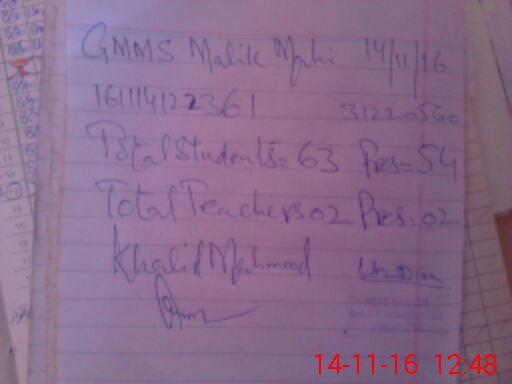 GMMS Malik Mahi 14/11/16
161114122361 31220560
Total Students = 63 Pres = 54
Total Teachers 02 Pres. 02
Khalid Mahmood
14-11-16 12:48